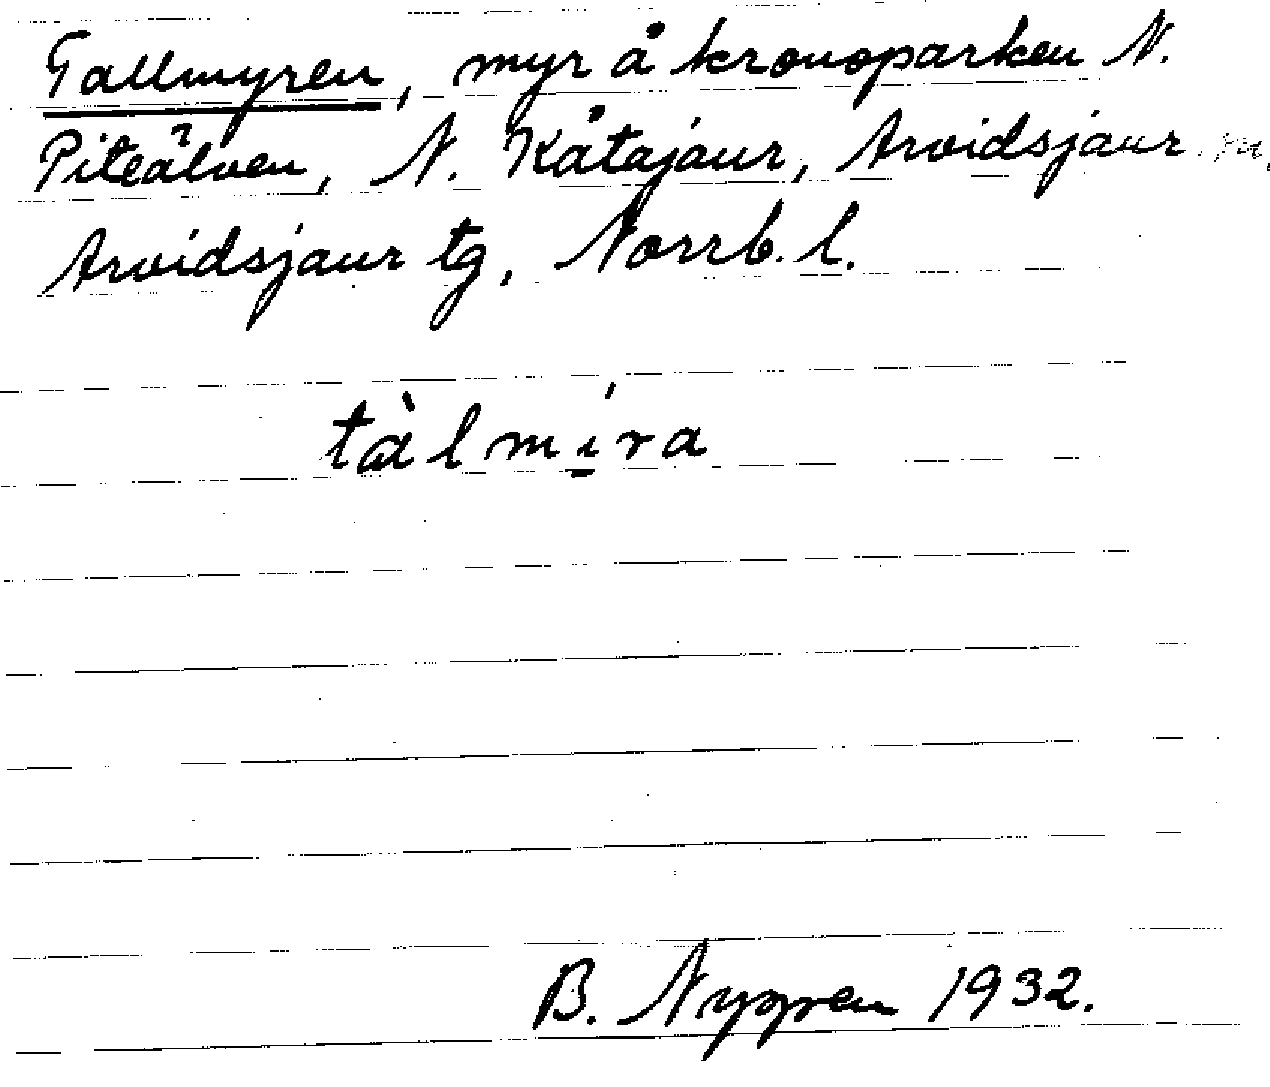 Tallmyren, myr å kronoparken N.
Piteälven, N. Kåtajaur, Arvidsjaur m.
Arvidsjaur tg, Norrb. l.
tàlmí̠ra
B. Nygren 1932.